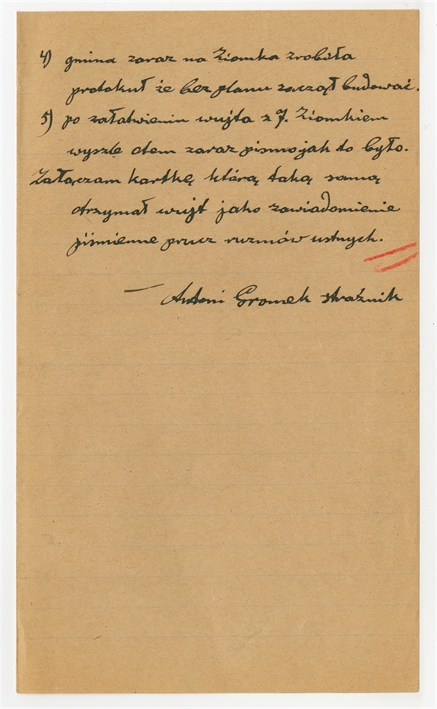 4) gmina zaraz na Ziomka zrobiła
protokuł że bez planu zaczął budować.
5) po załatwieniu wujta z J. Ziomkiem
wyszlę otem zaraz pismo jak to było.
Załączam kartkę którą taką samą
otrzymał wujt jako zawiadomienie
piśmienne prucz rozmów ustnych.
Antoni Gromek strażnik